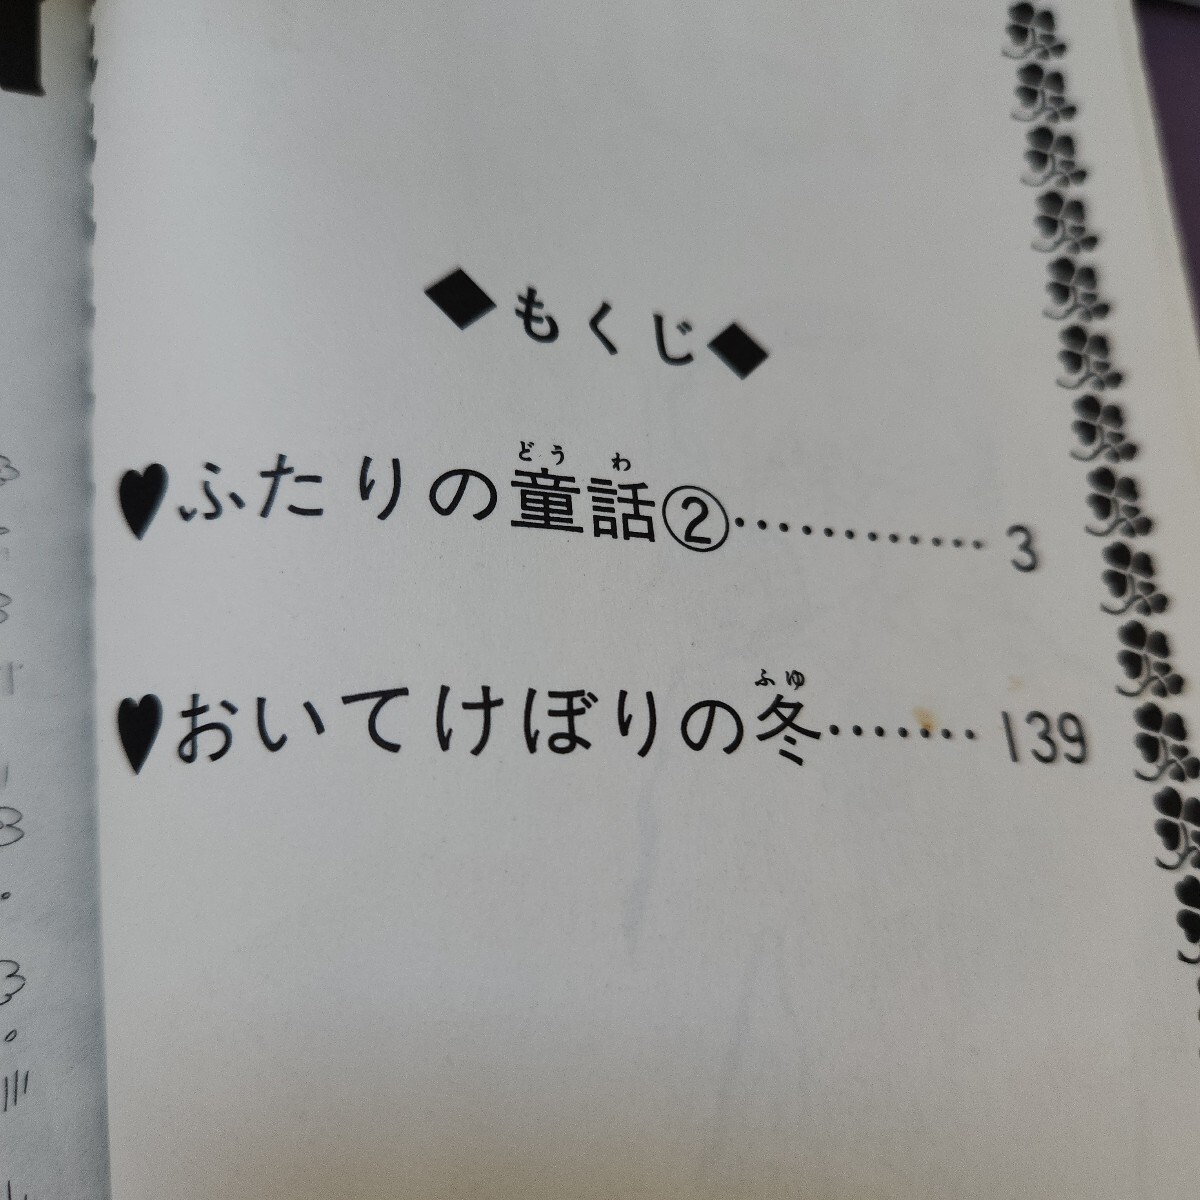 ◆もくじ◆
♥ふたりの童話②…………3
♥おいてけぼりの冬……139
どうわ
ふゆ